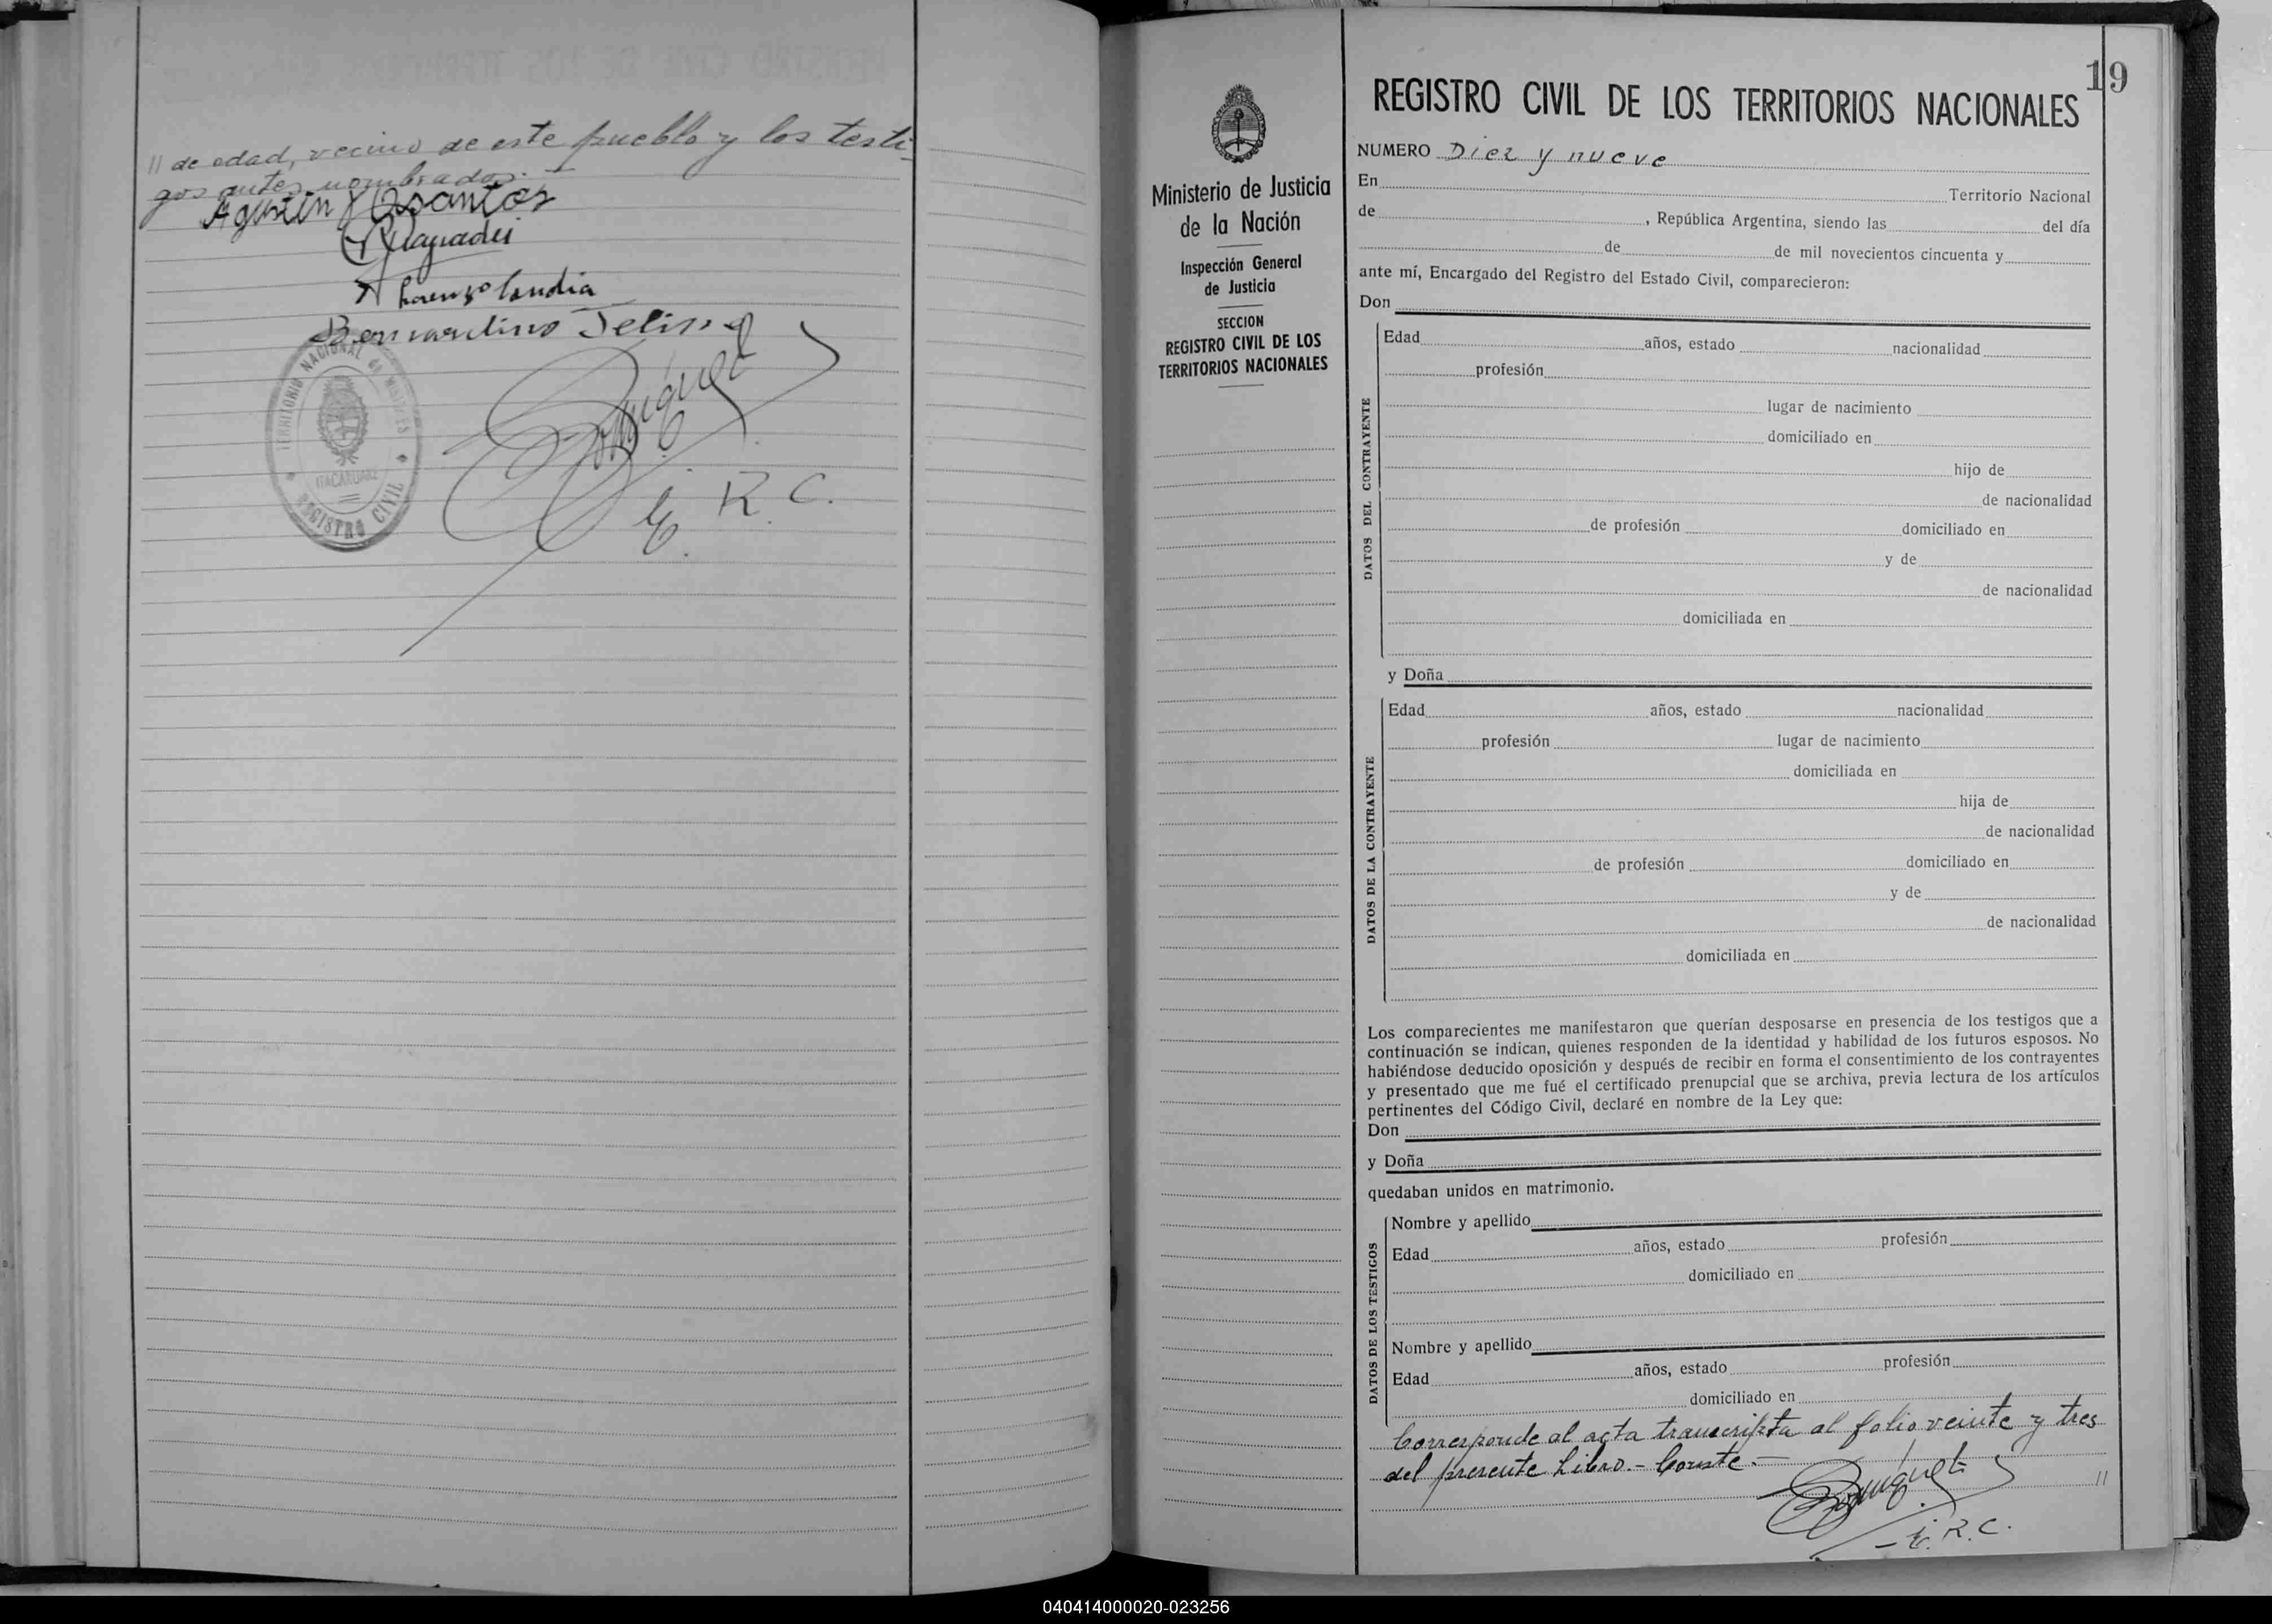 // de edad, vecino de este pueblo y los testi-
gos antes nombrados. -
Agustin Dsantos
Lorenzo Landia
Bernardino
TERRITORIO NACIONAL de MISIONES
ITACARUARE
REGISTRO CIVIL
E. R. C.
Ministerio de Justicia
de la Nación
Inspección General
de Justicia
SECCION
REGISTRO CIVIL DE LOS
TERRITORIOS NACIONALES
19
REGISTRO CIVIL DE LOS TERRITORIOS NACIONALES
NUMERO Diez y nueve
En Territorio Nacional
de , República Argentina, siendo las del día
de de mil novecientos cincuenta y
ante mí, Encargado del Registro del Estado Civil, comparecieron:
Don
DATOS DEL CONTRAYENTE
Edad años, estado nacionalidad
profesión
lugar de nacimiento
domiciliado en
hijo de
de nacionalidad
de profesión domiciliado en
y de
de nacionalidad
domiciliada en
y Doña
DATOS DE LA CONTRAYENTE
Edad años, estado nacionalidad
profesión lugar de nacimiento
domiciliada en
hija de
de nacionalidad
de profesión domiciliado en
y de
de nacionalidad
domiciliada en
Los comparecientes me manifestaron que querían desposarse en presencia de los testigos que a
continuación se indican, quienes responden de la identidad y habilidad de los futuros esposos. No
habiéndose deducido oposición y después de recibir en forma el consentimiento de los contrayentes
y presentado que me fué el certificado prenupcial que se archiva, previa lectura de los artículos
pertinentes del Código Civil, declaré en nombre de la Ley que:
Don
y Doña
quedaban unidos en matrimonio.
DATOS DE LOS TESTIGOS
Nombre y apellido
Edad años, estado profesión
domiciliado en
Nombre y apellido
Edad años, estado profesión
domiciliado en
Corresponde al acta transcripta al folio veinte y tres
del presente Libro. - Conste. -
//
E. R. C.
040414000020-023256